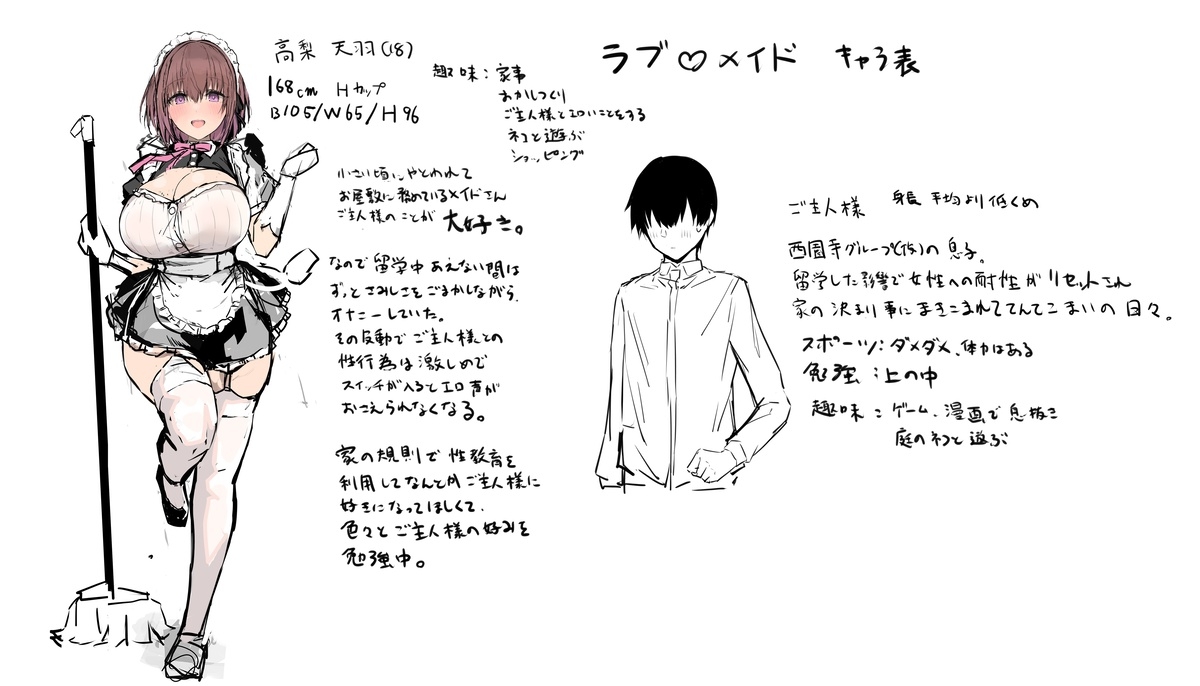 ラブ♡メイド キャラ表
高梨 天羽(18)
168cm Hカップ
B105/W65/H96
趣味:家事
おかしつくり
ご主人様とエロいことをする
ネコと遊ぶ
ショッピング
小さい頃にやとわれて
お屋敷に務めているメイドさん
ご主人様のことが 大好き。
なので留学中あえない間は
ずっとさみしさをごまかしながら
オナニーしていた。
その反動でご主人様との
性行為は激しめで
スイッチが入るとエロ声が
おさえられなくなる。
家の規則で性教育を
利用してなんとかご主人様に
好きになってほしくて、
色々とご主人様の好みを
勉強中。
ご主人様 身長 平均より低くめ
西園寺グループ(仮)の息子。
留学した影響で女性への耐性がリセットされ
家の決まり事にまきこまれててんてこまいの日々。
スポーツ:ダメダメ、体力はある
勉強:上の中
趣味:ゲーム、漫画で息抜き
庭のネコと遊ぶ